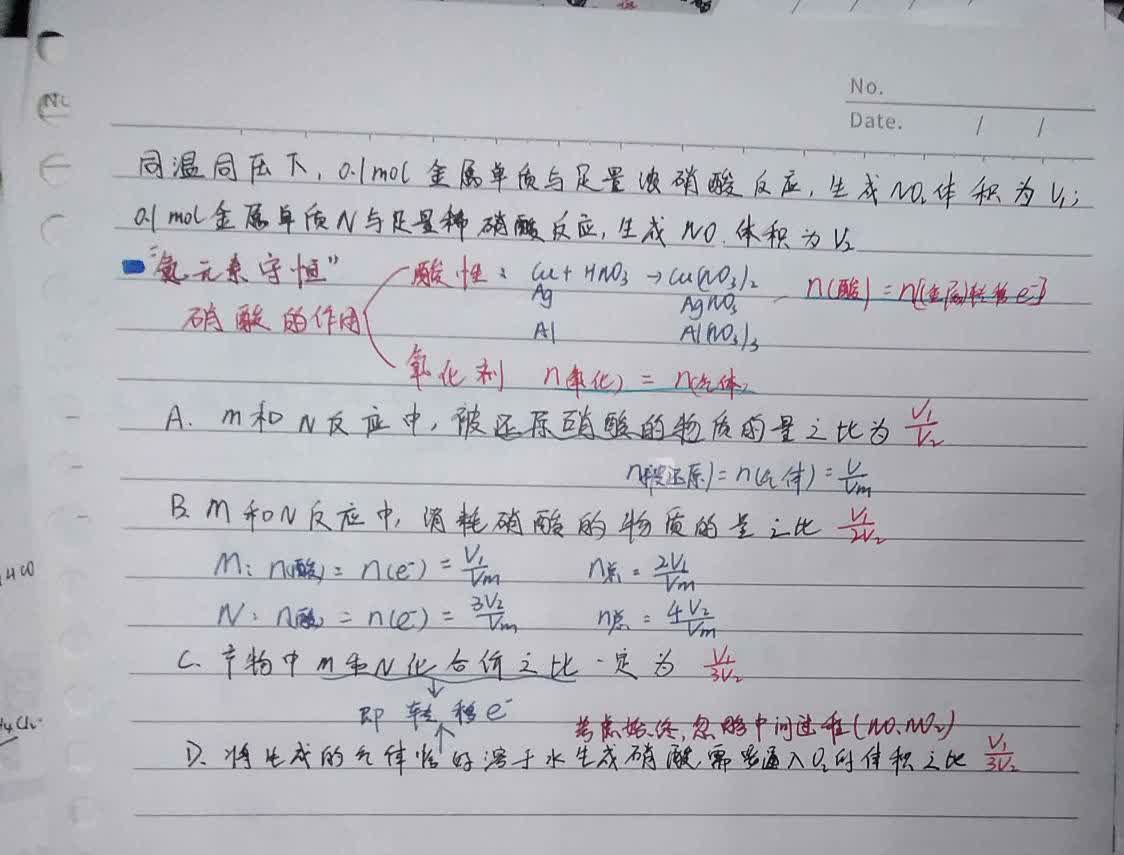 No.
Date. / /
同温同压下，0.1mol金属单质与足量浓硝酸反应，生成NO₂体积为V₁；
0.1mol金属单质N与足量稀硝酸反应，生成NO，体积为V₂
"氮元素守恒"
硝酸的作用
酸性：Cu + HNO₃ → Cu(NO₃)₂ n(酸) = n(金属)转移e⁻
Ag AgNO₃
Al Al(NO₃)₃
氧化剂 n(氧化) = n气体
A. m和N反应中，被还原硝酸的物质的量之比为 V₁/V₂
n(被还原) = n(气体) = V/Vm
B. M和N反应中，消耗硝酸的物质的量之比 V₁/2V₂
M: n(酸) = n(e⁻) = V₁/Vm n总 = 2V₁/Vm
N: n(酸) = n(e⁻) = 3V₂/Vm n总 = 4V₂/Vm
C. 产物中m和N化合价之比一定为 V₁/3V₂
即转移e⁻
考虑始终，忽略中间过程(NO、NO₂)
D. 将生成的气体恰好溶于水生成硝酸，需要通入O₂的体积之比 V₁/3V₂